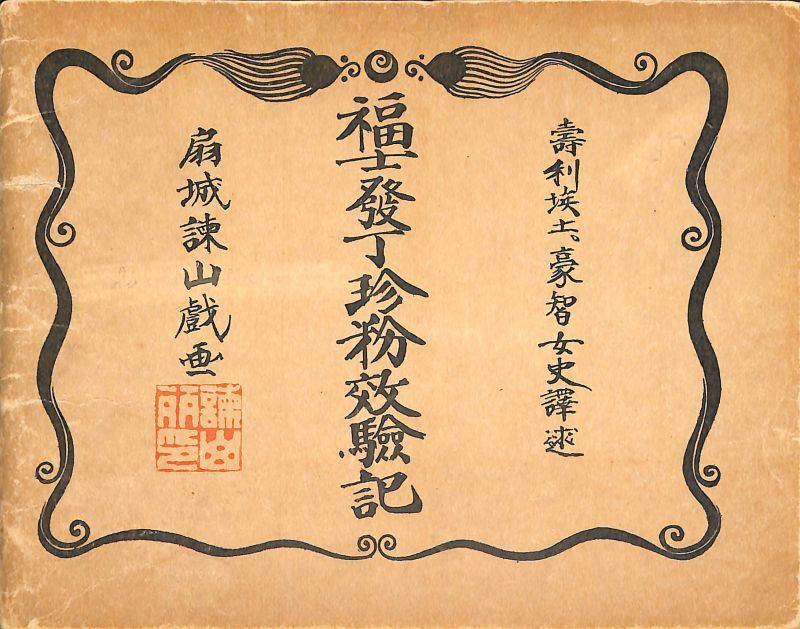 壽利埃土、豪智女史譯述
福士發丁珍粉效驗記
扇城諫山戯画